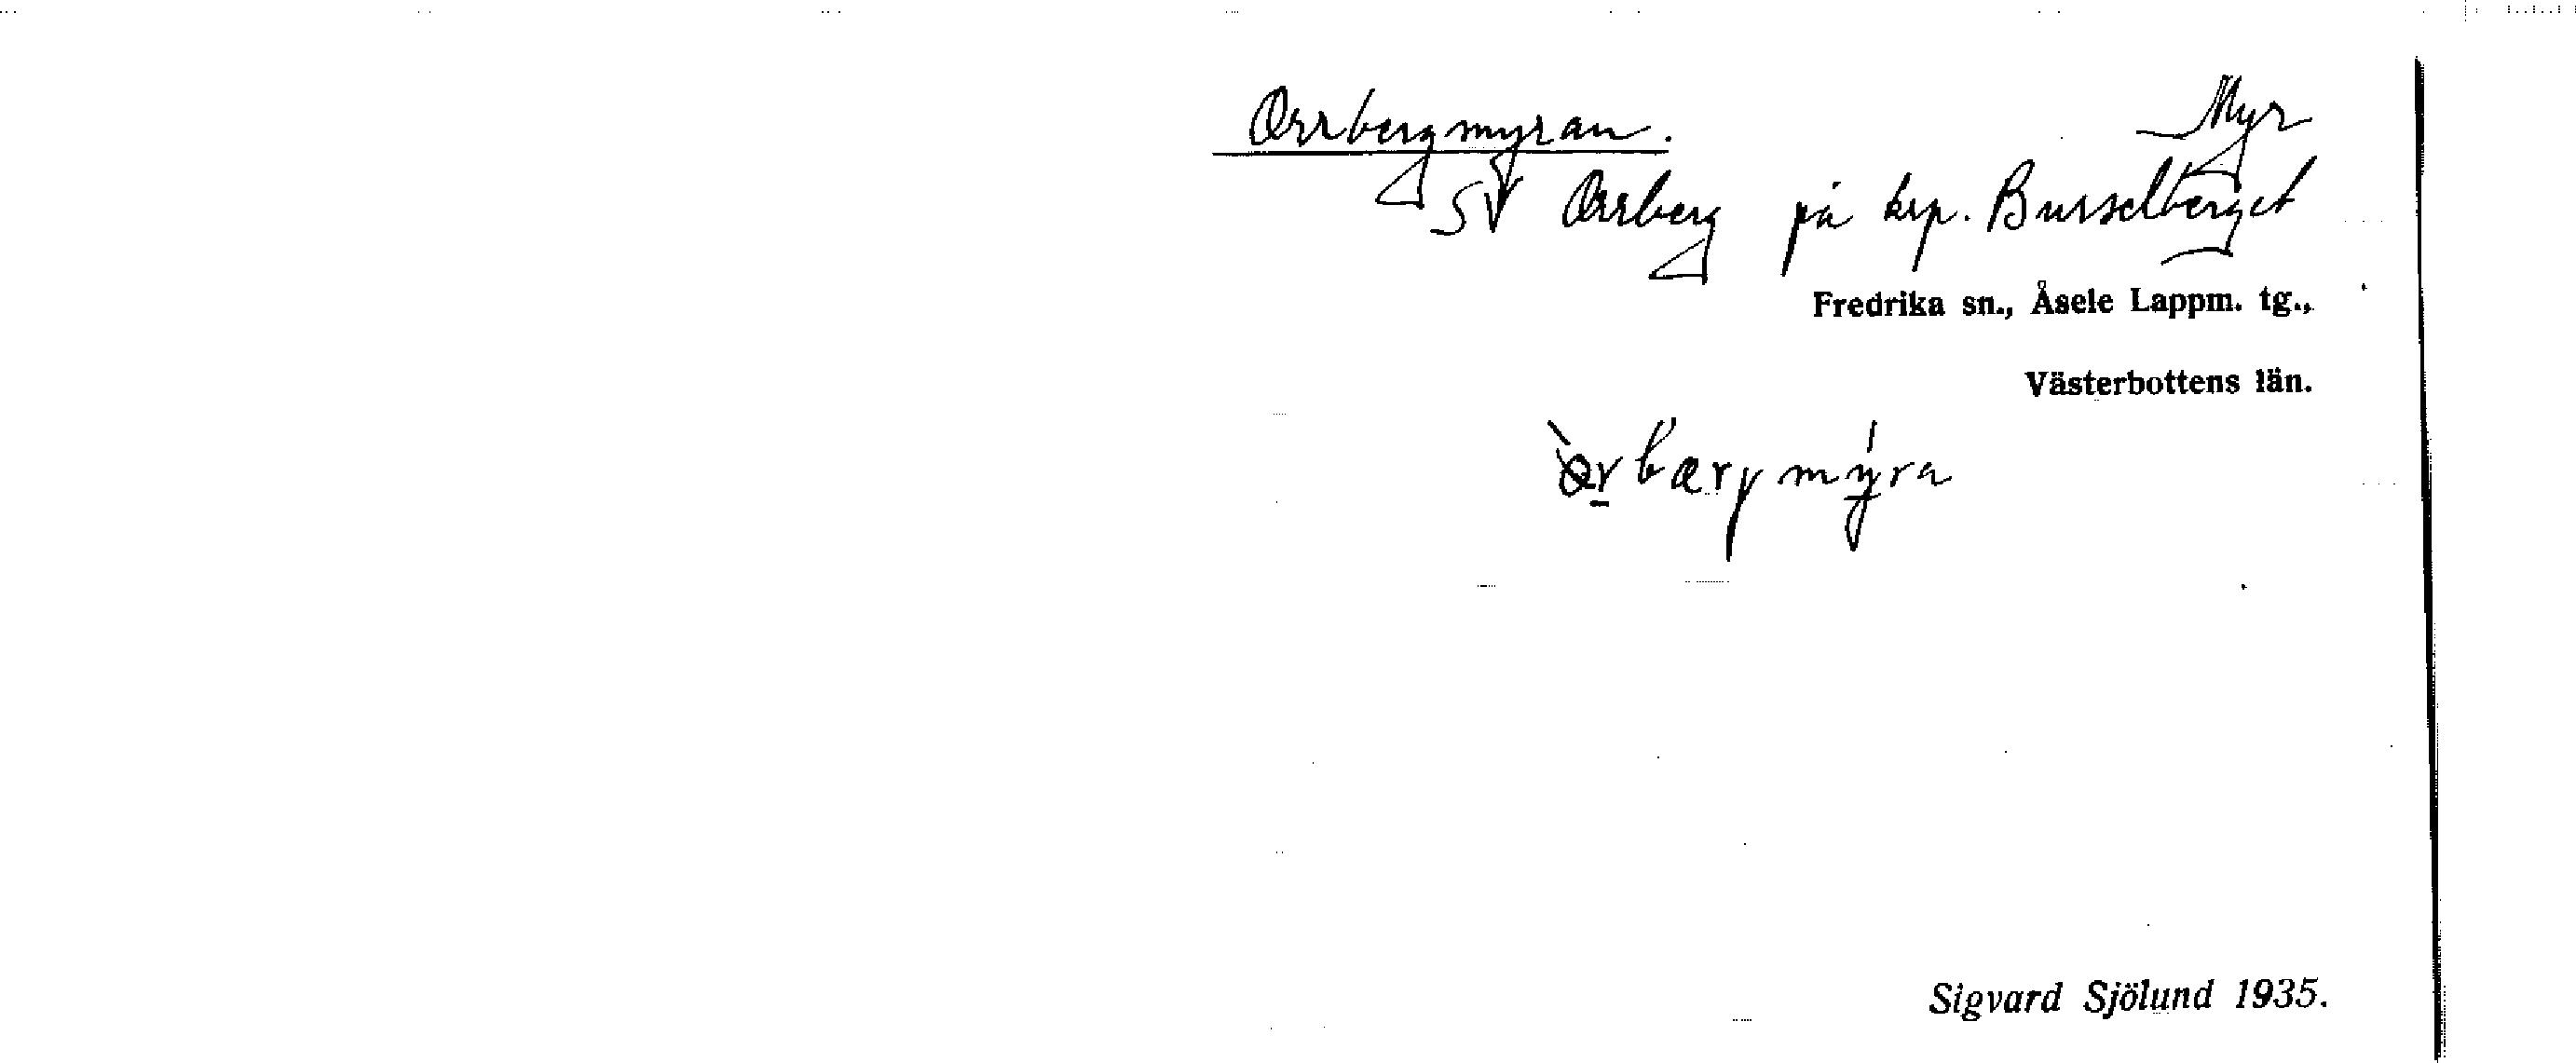 Orrbergmyran. Myr
SV Orrberg på krp. Busselberget
Fredrika sn., Åsele Lappm. tg.,
Västerbottens län.
Sigvard Sjölund 1935.